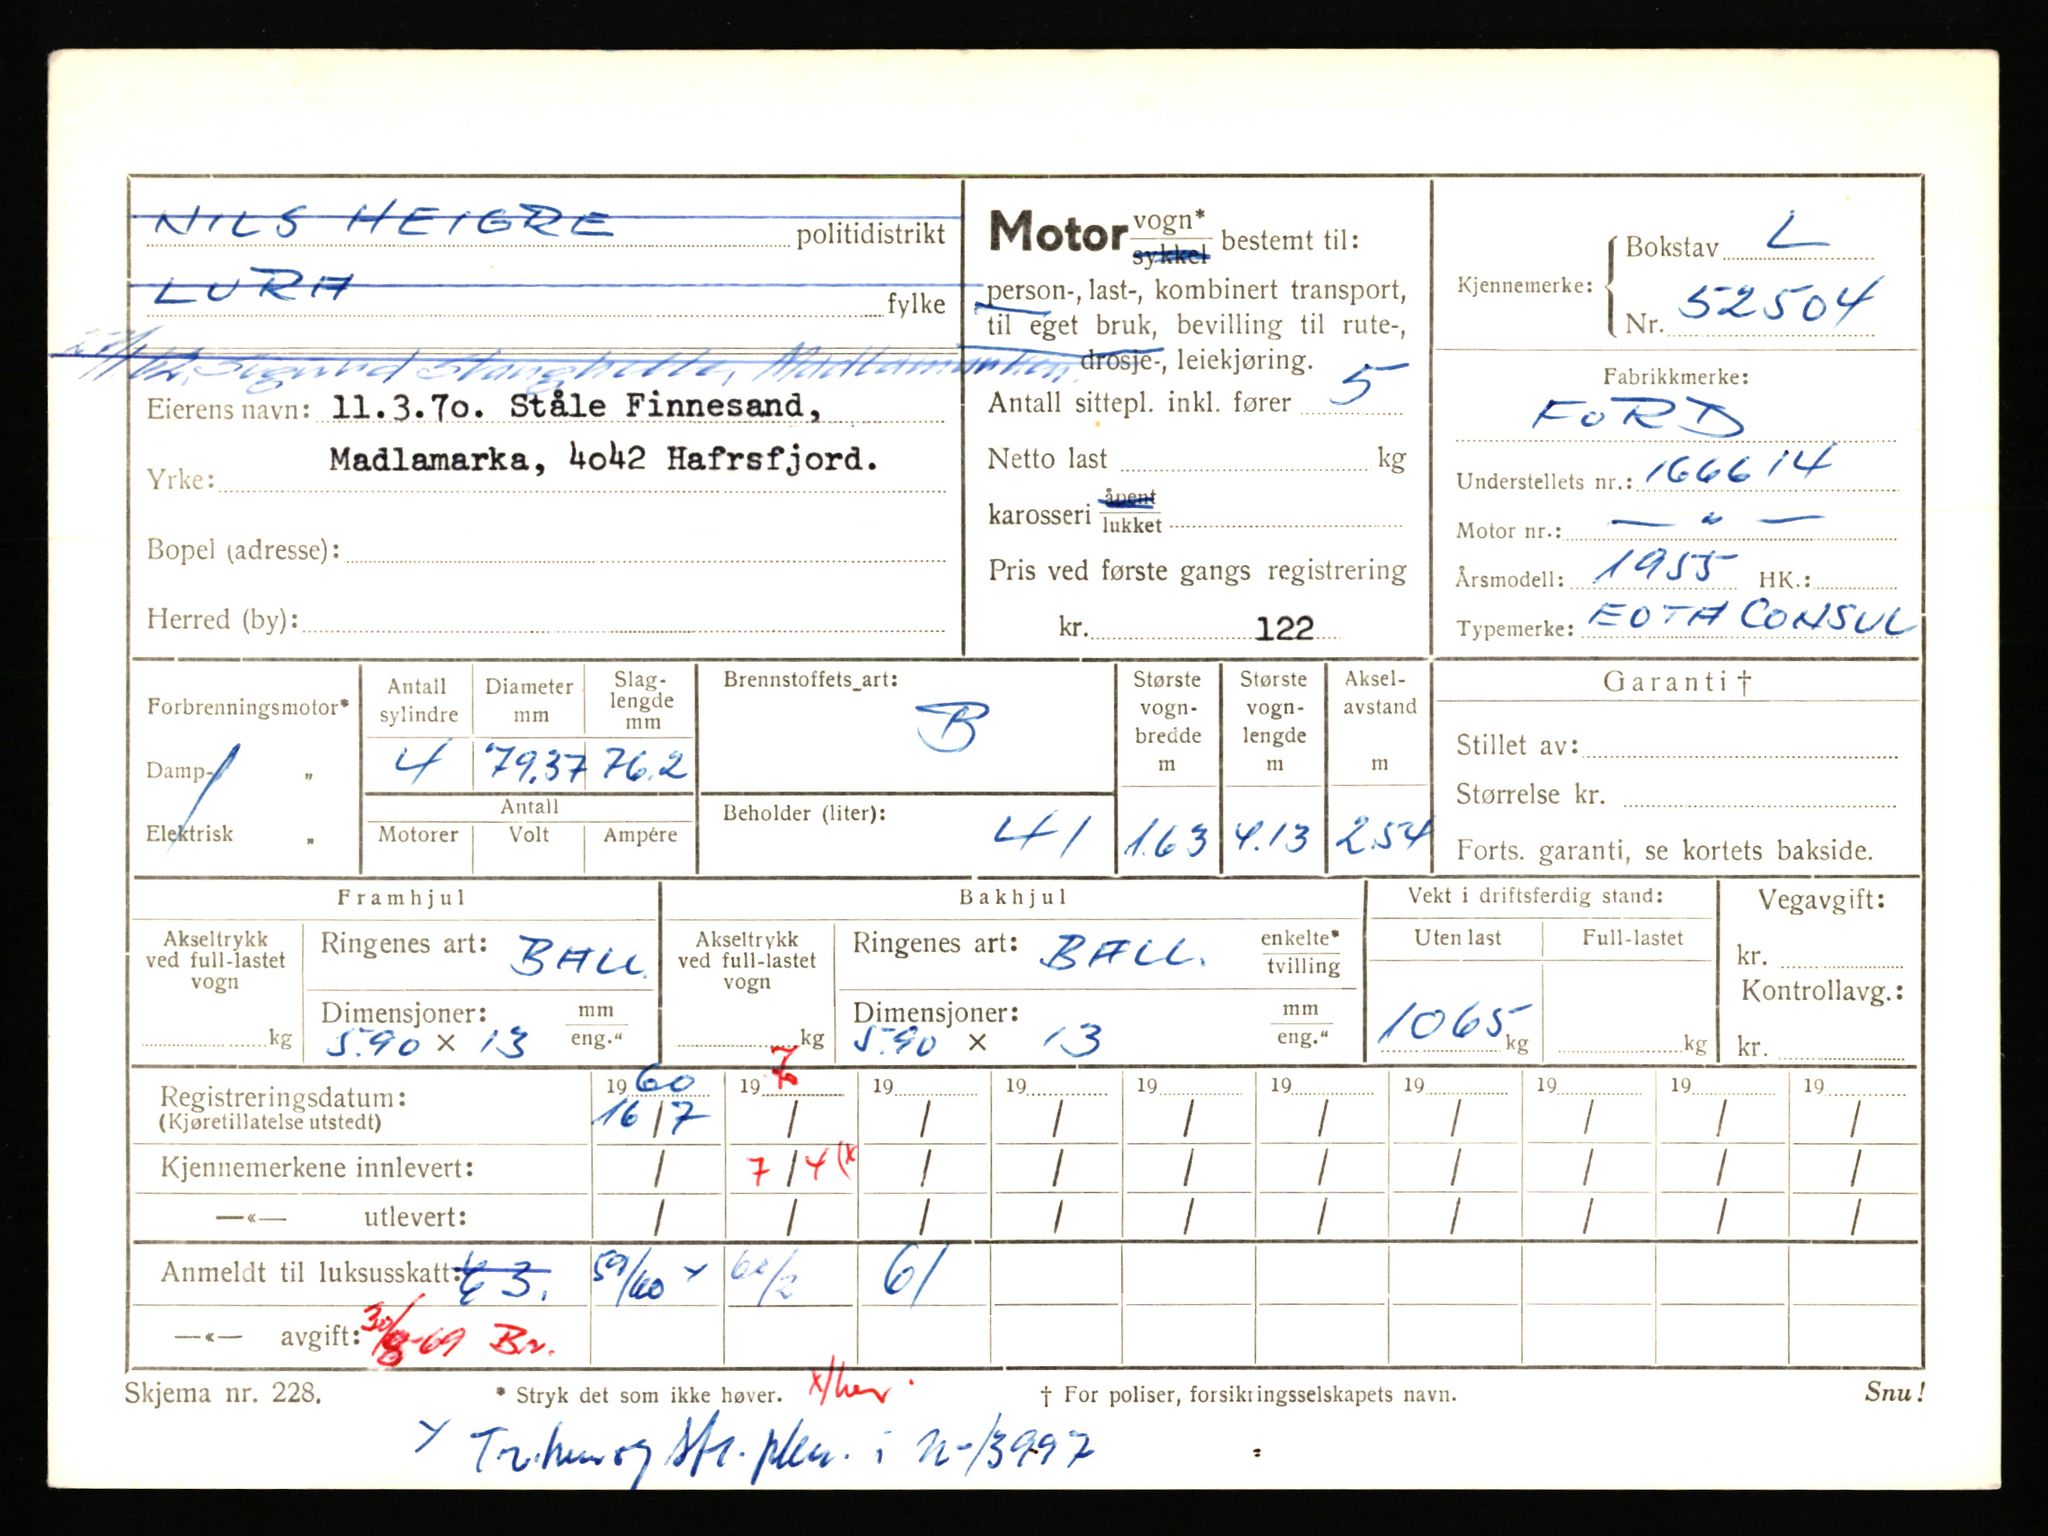 NILS HEIGRE politidistrikt
LURA fylke
Sigurd Stanghelle, Madlamarken.
Eierens navn: 11.3.70. Ståle Finnesand,
Madlamarka, 4042 Hafrsfjord.
Yrke:
Bopel (adresse):
Herred (by):
Motor vogn* sykkel bestemt til:
person-, last-, kombinert transport,
til eget bruk, bevilling til rute-,
drosje-, leiekjøring.
Antall sittepl. inkl. fører 5
Netto last kg
karosseri åpent lukket
Pris ved første gangs registrering
kr. 122
Kjennemerke: Bokstav L
Nr. 52504
Fabrikkmerke:
FORD
Understellets nr.: 166614
Motor nr.: — " —
Årsmodell: 1955 HK.:
Typemerke: EOTA CONSUL
Forbrenningsmotor*
Damp- „
Elektrisk „
Antall sylindre Diameter mm Slaglengde mm
4 79.37 76.2
Antall
Motorer Volt Ampére
Brennstoffets art:
B
Beholder (liter):
41
Største vognbredde m Største vognlengde m Akselavstand m
1.63 4.13 2.54
Garanti †
Stillet av:
Størrelse kr.
Forts. garanti, se kortets bakside.
Framhjul
Akseltrykk ved full-lastet vogn kg
Ringenes art: BALL.
Dimensjoner: mm eng."
5.90 × 13
Bakhjul
Akseltrykk ved full-lastet vogn kg
Ringenes art: BALL. enkelte* tvilling
Dimensjoner: mm eng."
5.90 × 13
Vekt i driftsferdig stand:
Uten last Full-lastet
1065 kg kg
Vegavgift:
kr.
Kontrollavg.:
kr.
Registreringsdatum: 1960 197 19 19 19 19 19 19 19 19
(Kjøretillatelse utstedt) 16/7 / / / / / / / / /
Kjennemerkene innlevert: / 7/4 (x / / / / / / / /
—«— utlevert: / / / / / / / / / /
Anmeldt til luksusskatt: 3. 59/60 Y 60/2 61
—«— avgift: 30/8-69 Br.
Skjema nr. 228. * Stryk det som ikke høver. x/her. † For poliser, forsikringsselskapets navn. Snu!
Y i N-13997